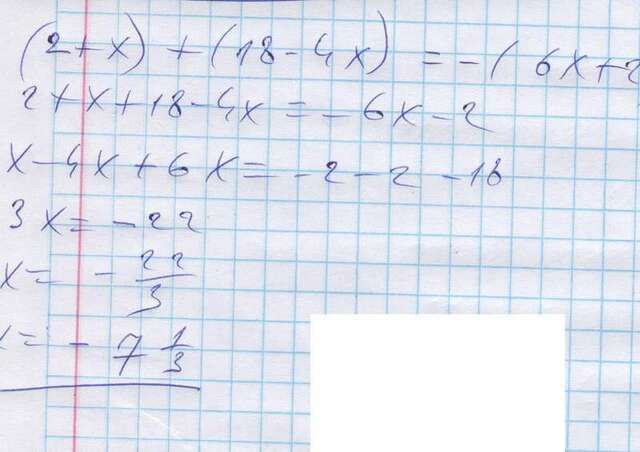 (2+x) + (18-4x) = -(6x+2
2+x+18-4x=-6x-2
x-4x+6x=-2-2-18
3x=-22
x= -22/3
= -7 1/3